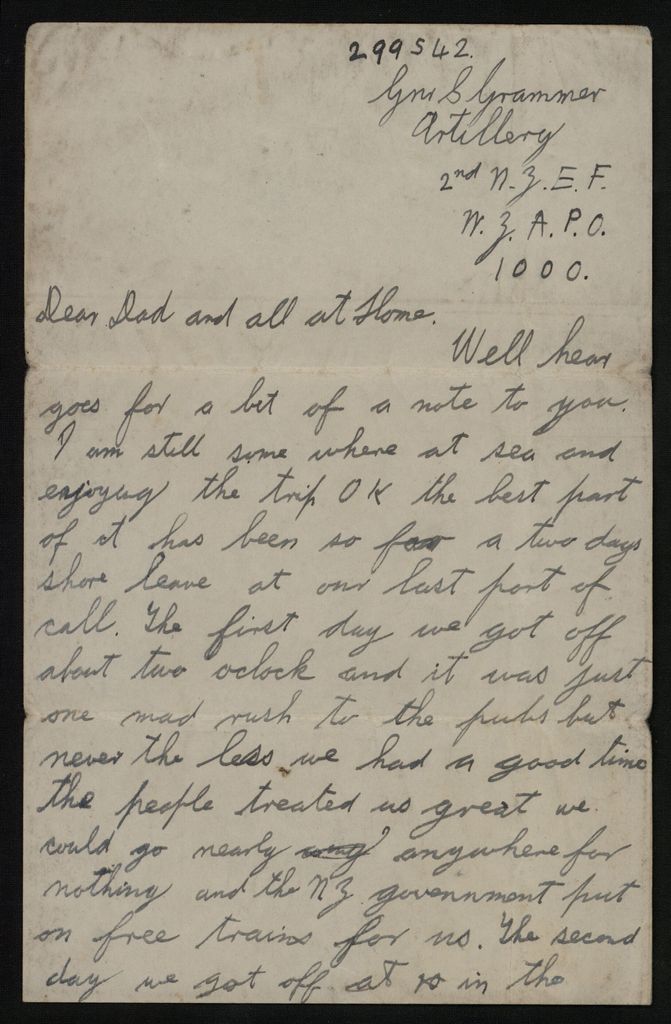 299542.
Gnr S Grammer
Artillery
2nd N.Z.E.F.
N.Z.A.P.O.
1000.
Dear Dad and all at Home.
Well hear
goes for a bit of a note to you.
I am still some where at sea and
enjoyug the trip OK the best part
of it has been so far a two days
shore leave at our last port of
call. The first day we got off
about two oclock and it was just
one mad rush to the pubs but
never the less we had a good time
the people treated us great we
could go nearly anywhere for
nothing and the NZ govennment put
on free trains for us. The second
day we got off at 10 in the